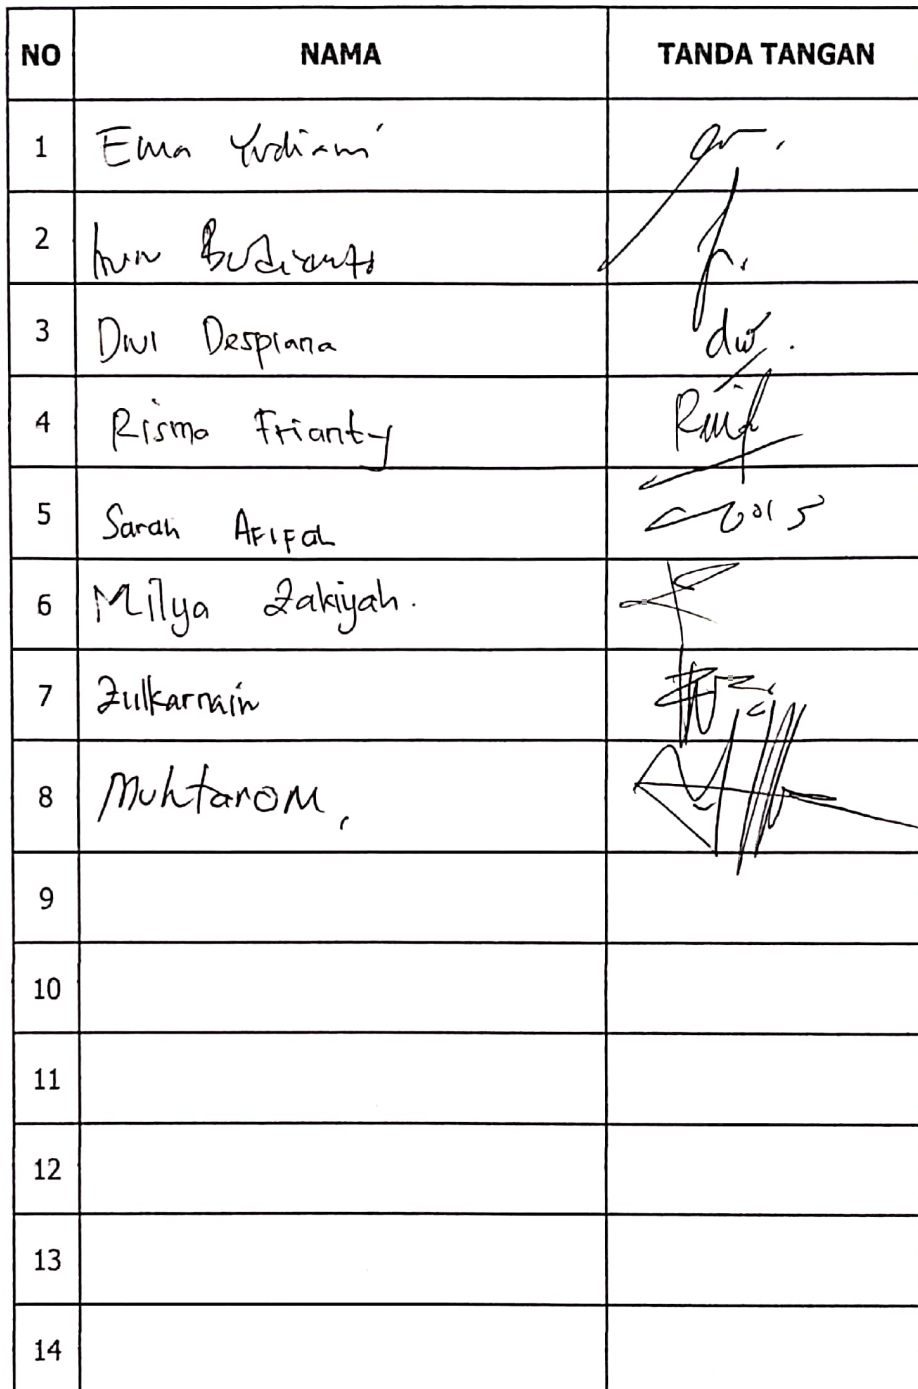 NO NAMA TANDA TANGAN
1 Erna Yudiani
2 Budiyanto
3 Dwi Despiana dw.
4 Risma Frianty
5 Sarah AFIFah
6 Milya Zakiyah.
7 Zulkarnain
8 Muhtarom,
9
10
11
12
13
14